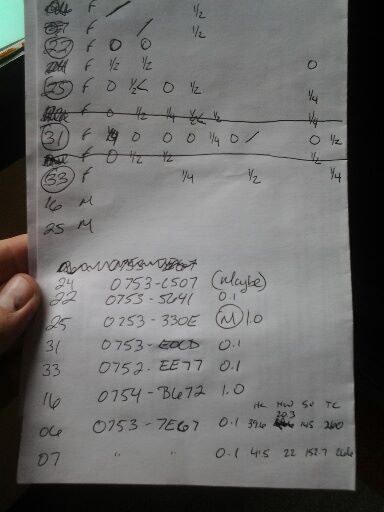 F / 1/2
F / 1/2
22 F 0 0
F 1/2 1/2 0
25 F 0 1/2< 0 1/2 1/4
F 0 1/2 1/4 1/2 1/4
31 F 0 0 0 1/4 0 / 0 1/2
0 1/2 1/2 1/2
33 F 1/4 1/2 1/4
16 M
25 M
24 0753-C507 (Maybe)
22 0753-5641 0.1
25 0253-330E M 1.0
31 0753-E0CD 0.1
33 0752-EE77 0.1
16 0754-B672 1.0
HL HW SV TC
20.3
06 0753-7E67 0.1 39.6 145 260
07 " " 0.1 41.5 22 152.7